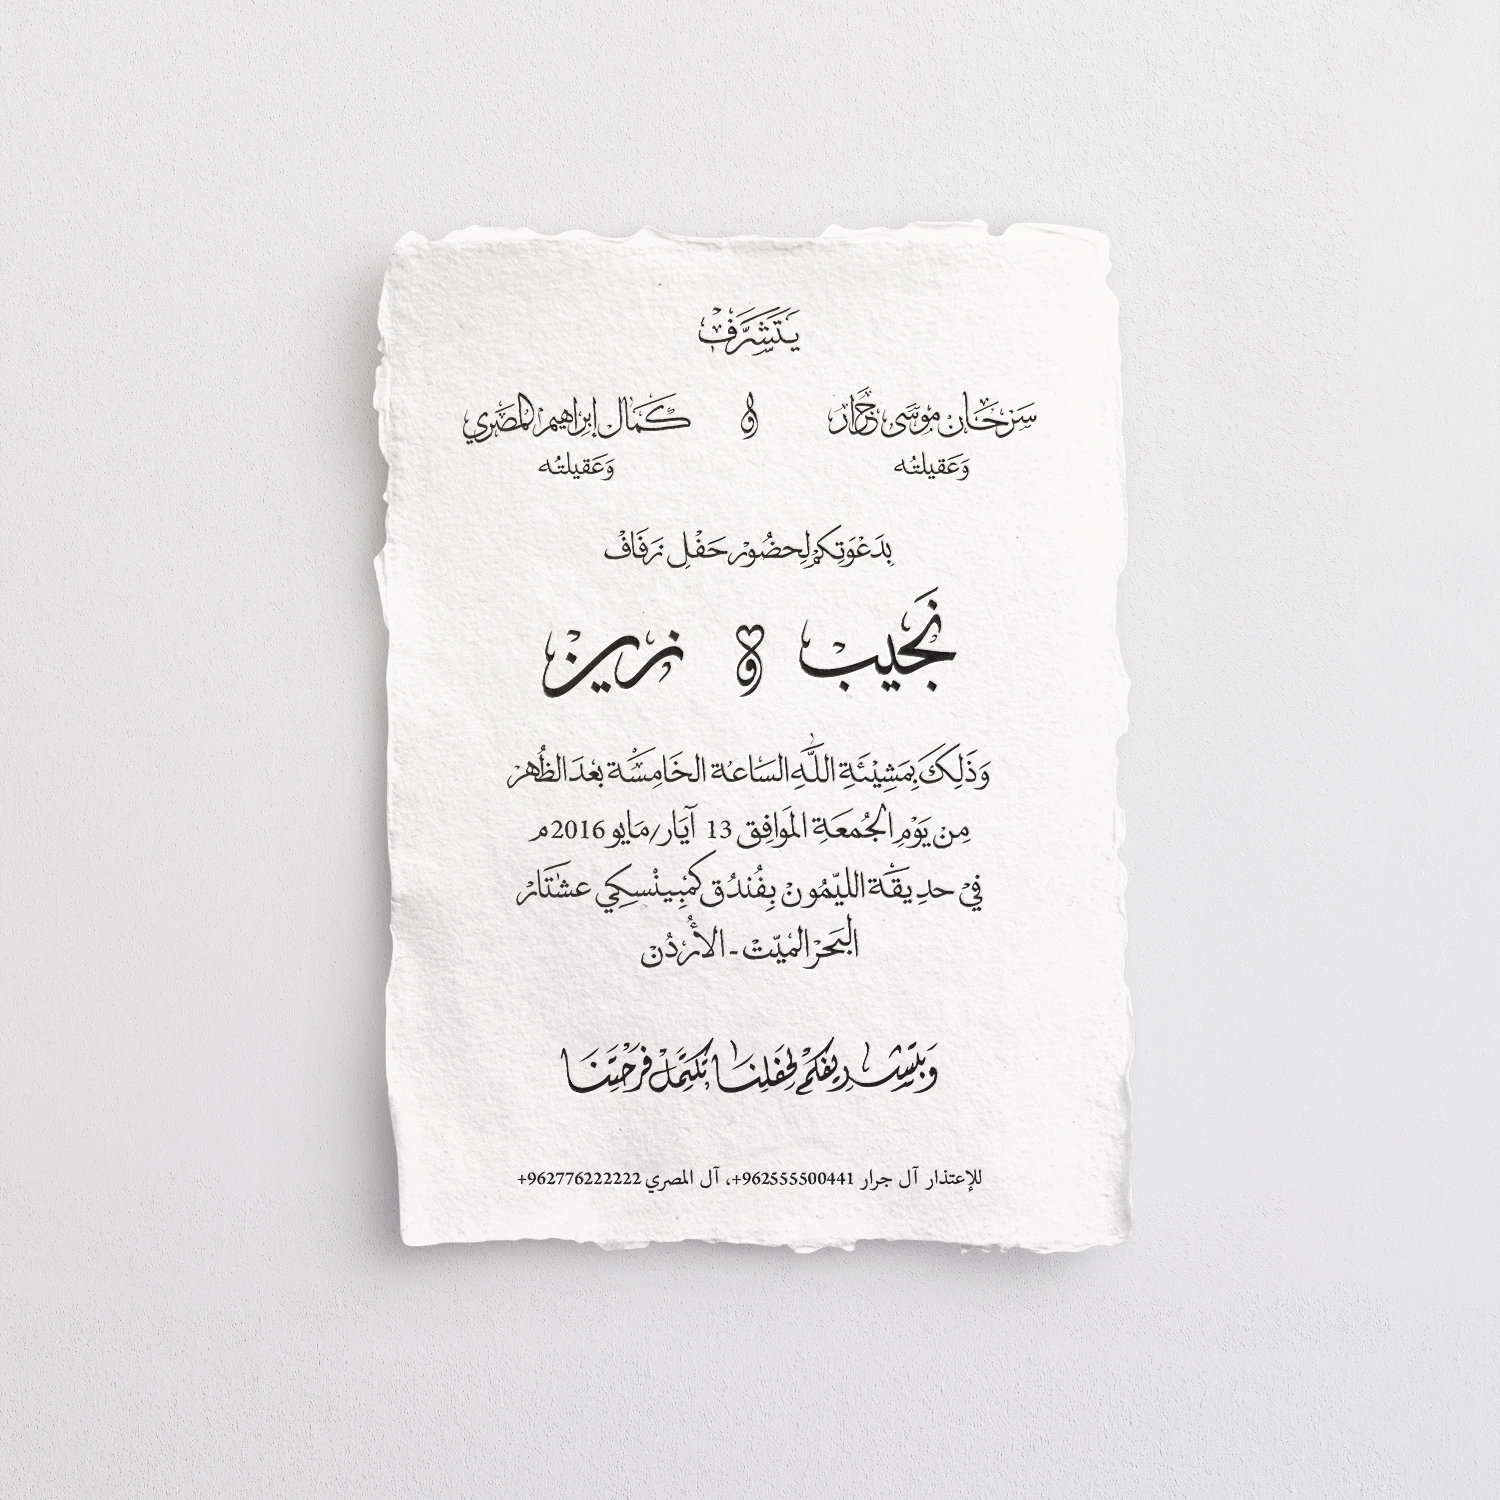 يَتَشَرَّفْ
سَرْحَان موسَى جَرَار و كَمَال إبراهيم المَصَري
وَعَقيلتُه وَعَقيلتُه
بِدَعْوَتِكم لِحضُور حَفْلِ زَفَافْ
نَجيب و زين
وَذَلِكَ بِمَشِيْئَةِ اللَّهِ السَاعة الخَامِسَة بعدَ الظُهر
مِنْ يَوْمِ الجُمعَةِ المَوَافِق 13 آيَار/مَايو 2016م
فيْ حدِيقَة الليّمُونْ بِفُندُق كمْبِينْسكِي عشتَارْ
البَحرْ الميّتْ - الأُرْدُنْ
وَبِتَشـريفكمْ لِحَفلِنَا تَكتَمِلْ فَرحَتنَا
للإعتذار آل جرار 962555500441+، آل المصري 962776222222+